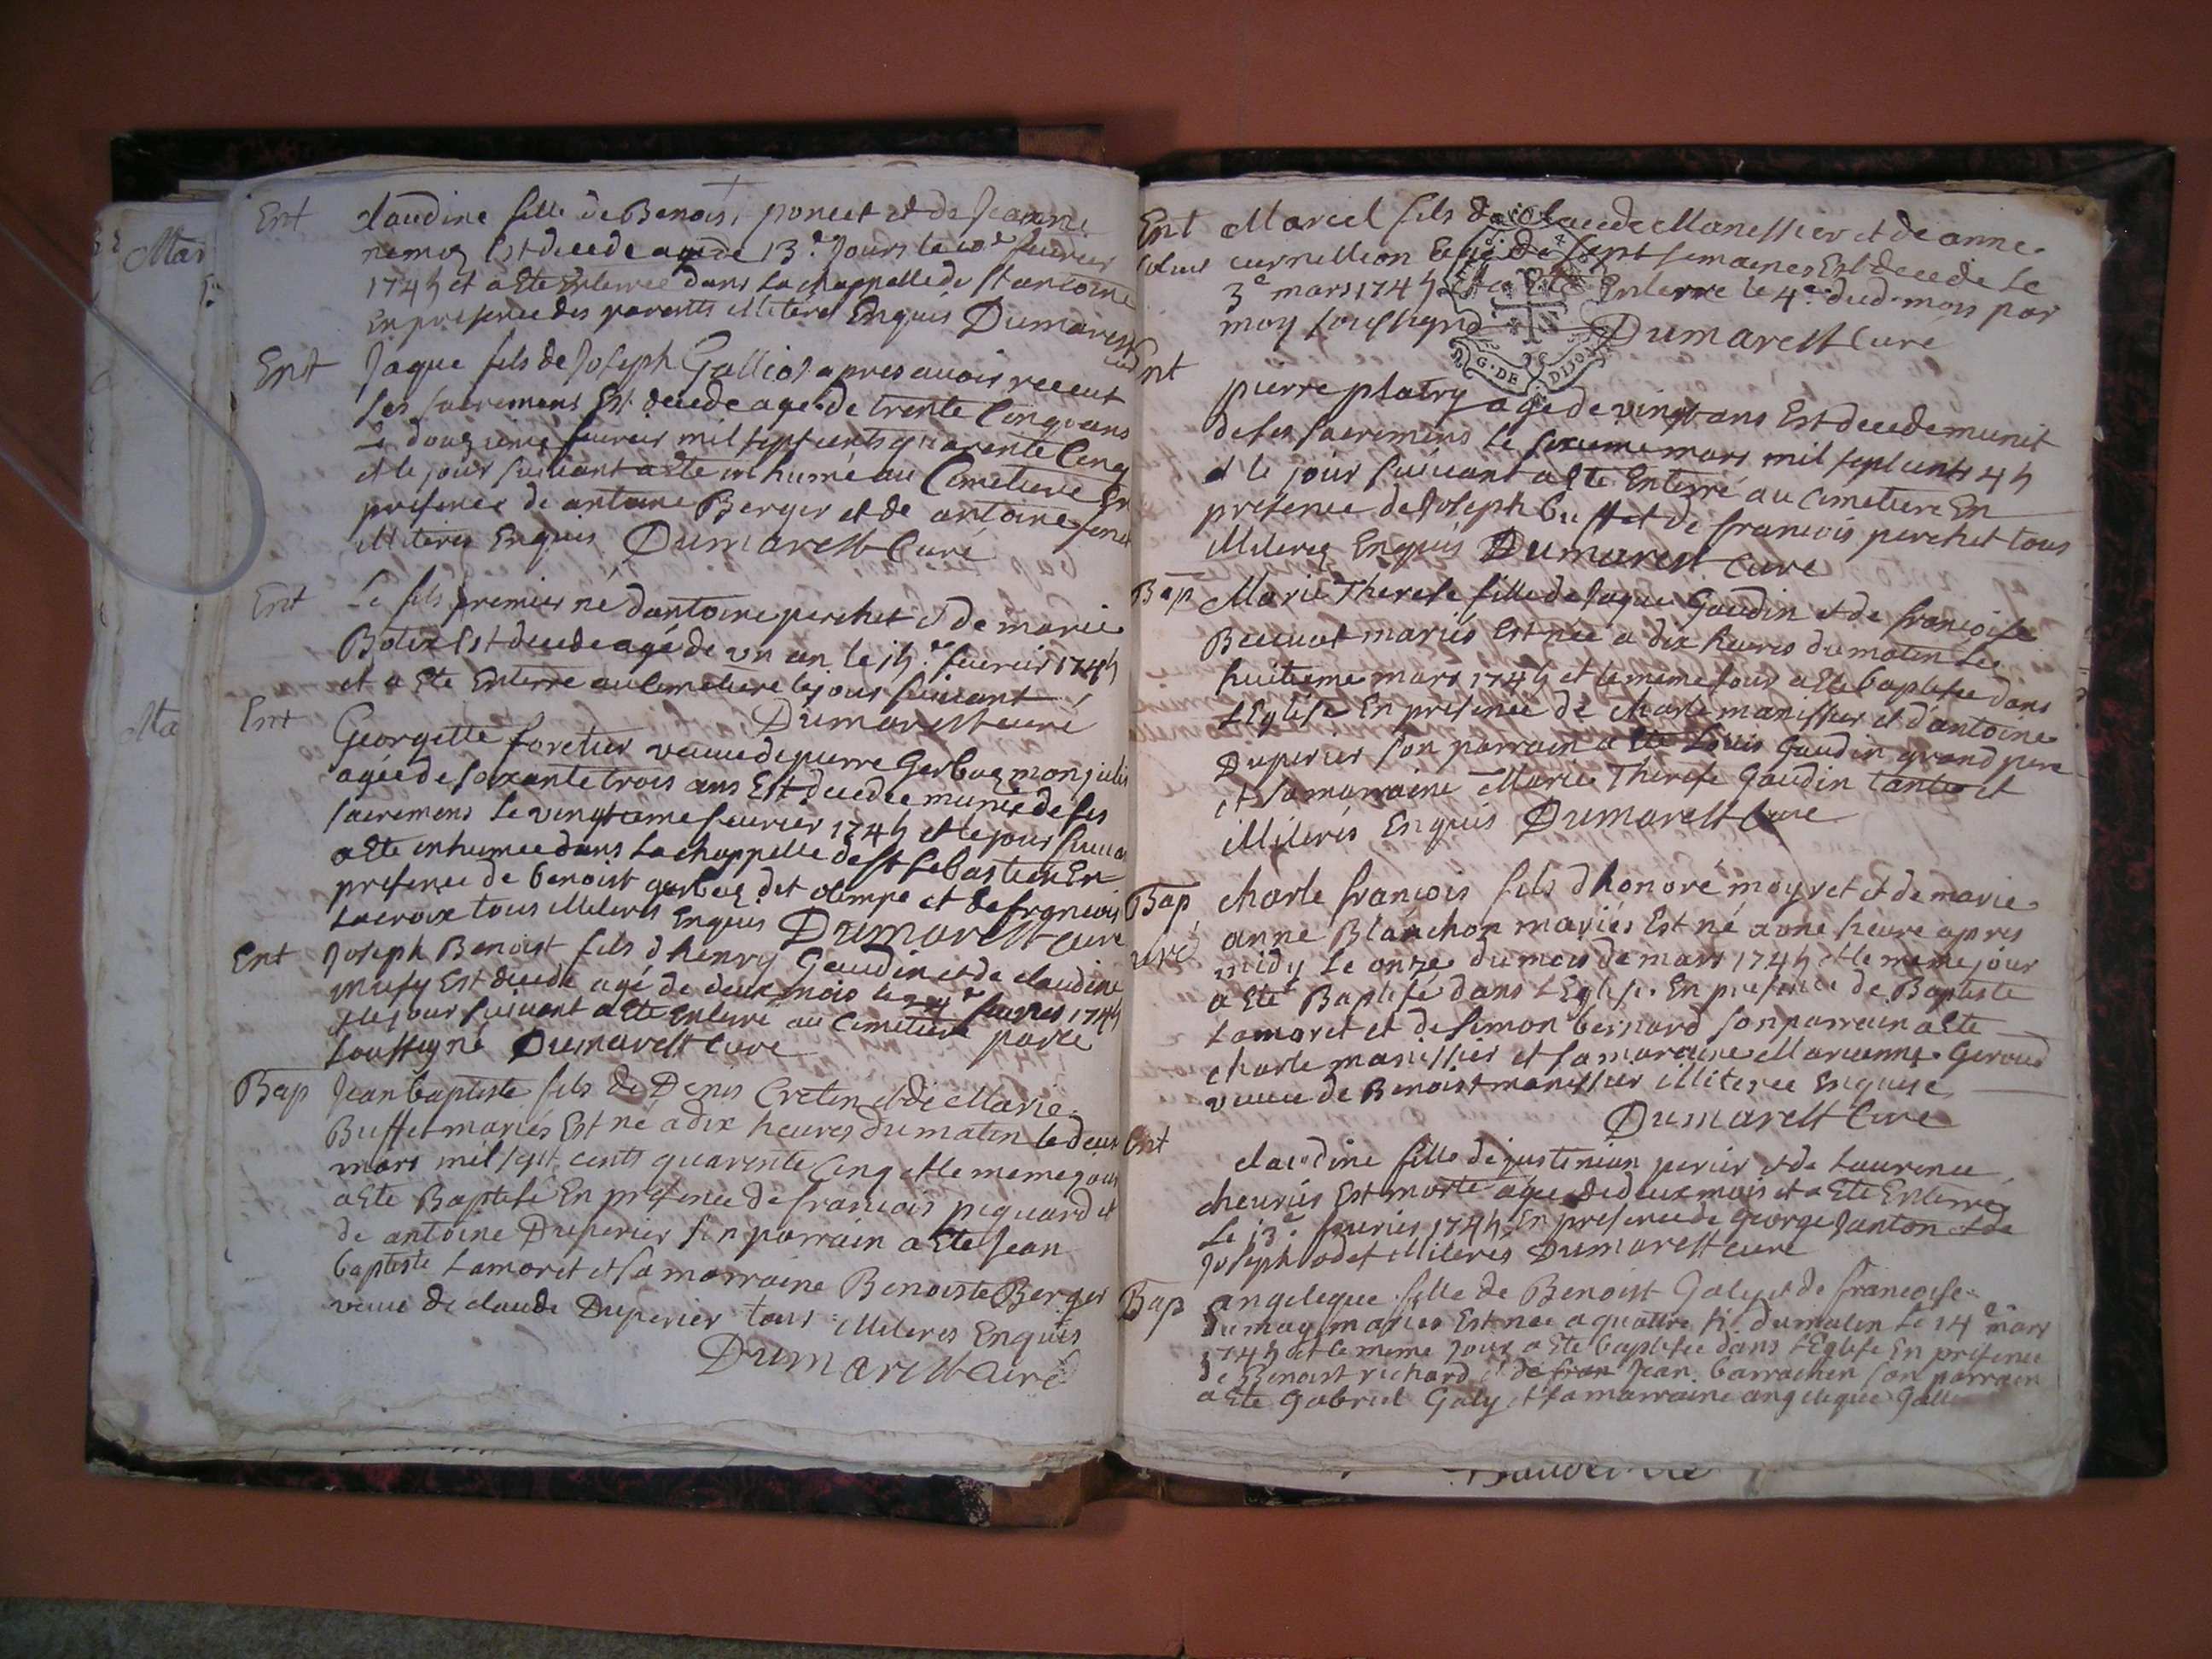 Mar
Ma
Ent
claudine fille de Benoist poncet et de Jeanne
nemoz Est decede agé de 13.e Jours le 10e feuvrier
1745 et a Ete Enterree dans La chappelle de St antoine
En presence des parents illiterés Enquis Dumarest
Ent
Jaque fils de Joseph Galliot apres avoir receut
ses sacremens Est decede agé de trente Cinq ans
Le douzieme feuvrier mil sept cents quarente Cinq
et le jour suivant a Ete inhumé au Cimetiere En
presence de antoine Berger et de antoine
illiteres Enquis Dumarest Curé
Ent
Le fils premier né dantoine perchet et de marie
Est decede agé de un an le 15.e feuvrier 1745
et a Ete Enterre au Cimetiere le jour suivant
Dumarest curé
Ent
Georgette foretier veuve de pierre Gerbaz
agée de soixante trois ans Est decedee munie de ses
sacremens Le vingtieme feuvrier 1745 et le jour
a Ete inhumee dans La chappelle de St Sebastien En
presence de benoist gerbaz dit olimpe et de francois
Lacroix tous illiterés Enquis Dumarest cure
Ent
Joseph Benoist fils d henry Gaudin et de claudine
Est decede agé de deux mois le feuvrier 1745
et le jour suivant a Ete Enterré au Cimetiere par le
soussigné Dumarest Cure
Bap
Jean baptiste fils de Denis Cretin et de Marie
Buffet mariés Est né a dix heures du matin le deux
mars mil sept cents quarente Cinq et le meme jour
a Ete Baptisé En presence de francois piquard et
de antoine Duperier son parrain a Ete Jean
baptiste Lamoret et sa marraine Benoiste Berger
veuve de claude Duperier tous illiteres Enquis
Dumarest Curé
Ent
Marcel fils de claude Manessier et de anne
curnillion agé de sept semaines Est decede Le
3e mars 1745 et a Ete Enterre le 4e dud. mois par
moy soussigné Dumarest Cure
G. DE DIJON
Ent
pierre platry agé de vingt ans Est decede munit
de ses sacremens Le sixieme mars mil sept cents 45
et le jour suivant a Ete Enterré au Cimetiere En
presence de Joseph buffet de francois perchet tous
illiterés Enquis Dumarest Cure
Bap
Marie Therese fille de Jaque Gaudin et de francoise
mariés Est née a dix heures du matin Le
huitieme mars 1745 et le meme Jour a Ete baptisée dans
L'Eglise En presence de charle manissier et d'antoine
Duperier son parrain a Ete Louis Gaudin grand pere
et sa marraine Marie Therese Gaudin tante et
illiterés Enquis Dumarest Cure
Bap
charle francois fils d honoré moyret et de marie
anne Blanchon mariés Est né a une heure apres
midy Le onze du mois de mars 1745 et le meme jour
a Ete Baptisé dans L'Eglise En presence de Baptiste
Lamoret et de simon bernard son parrain a Ete
charle manissier et sa maraine Marianne Geroud
veuve de Benoist manissier illiterée Enquise
Dumarest Cure
Ent
claudine fille de justinian perier et de Laurence
cheuriés Est morte agée de deux mois et a Ete Enterrée
Le 13.e feuvrier 1745 En presence de george Janton et de
Joseph odet illiterés Dumarest cure
Bap
angelique fille de Benoist Galy et de francoise
Dumay mariés Est née a quattre h. du matin Le 14e mars
1745 et le meme Jour a Ete baptisée dans L'Eglise En presence
de Benoist richard et de fran Jean barrachin son parrain
a Ete Gabriel Galy et sa marraine angelique